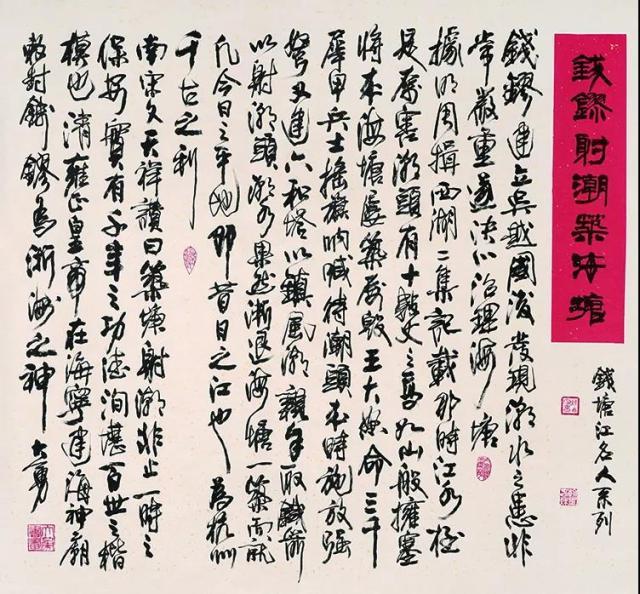 錢鏐射潮築海塘
錢塘江名人系列
錢鏐建立吳越國後發現潮水之患非
常嚴重遂決心治理海塘
據明周揖西湖二集記載那時江水極
是厲害潮頭有十數丈之高如山般擁塞
將來海塘屢築屢毀王大怒命三千
犀甲兵士搖旗吶喊待潮頭來時施放強
弩又建六和塔以鎮風潮親手取鐵箭
以射潮頭潮水果然漸退海塘一築而就
凡今日之平地即昔日之江也為杭州
千古之利
南宋文天祥讚曰築塘射潮非止一時之
保安實有千年之功德洵堪百世之楷
模也清雍正皇帝在海寧建海神廟
敕封錢鏐為浙海之神大勇